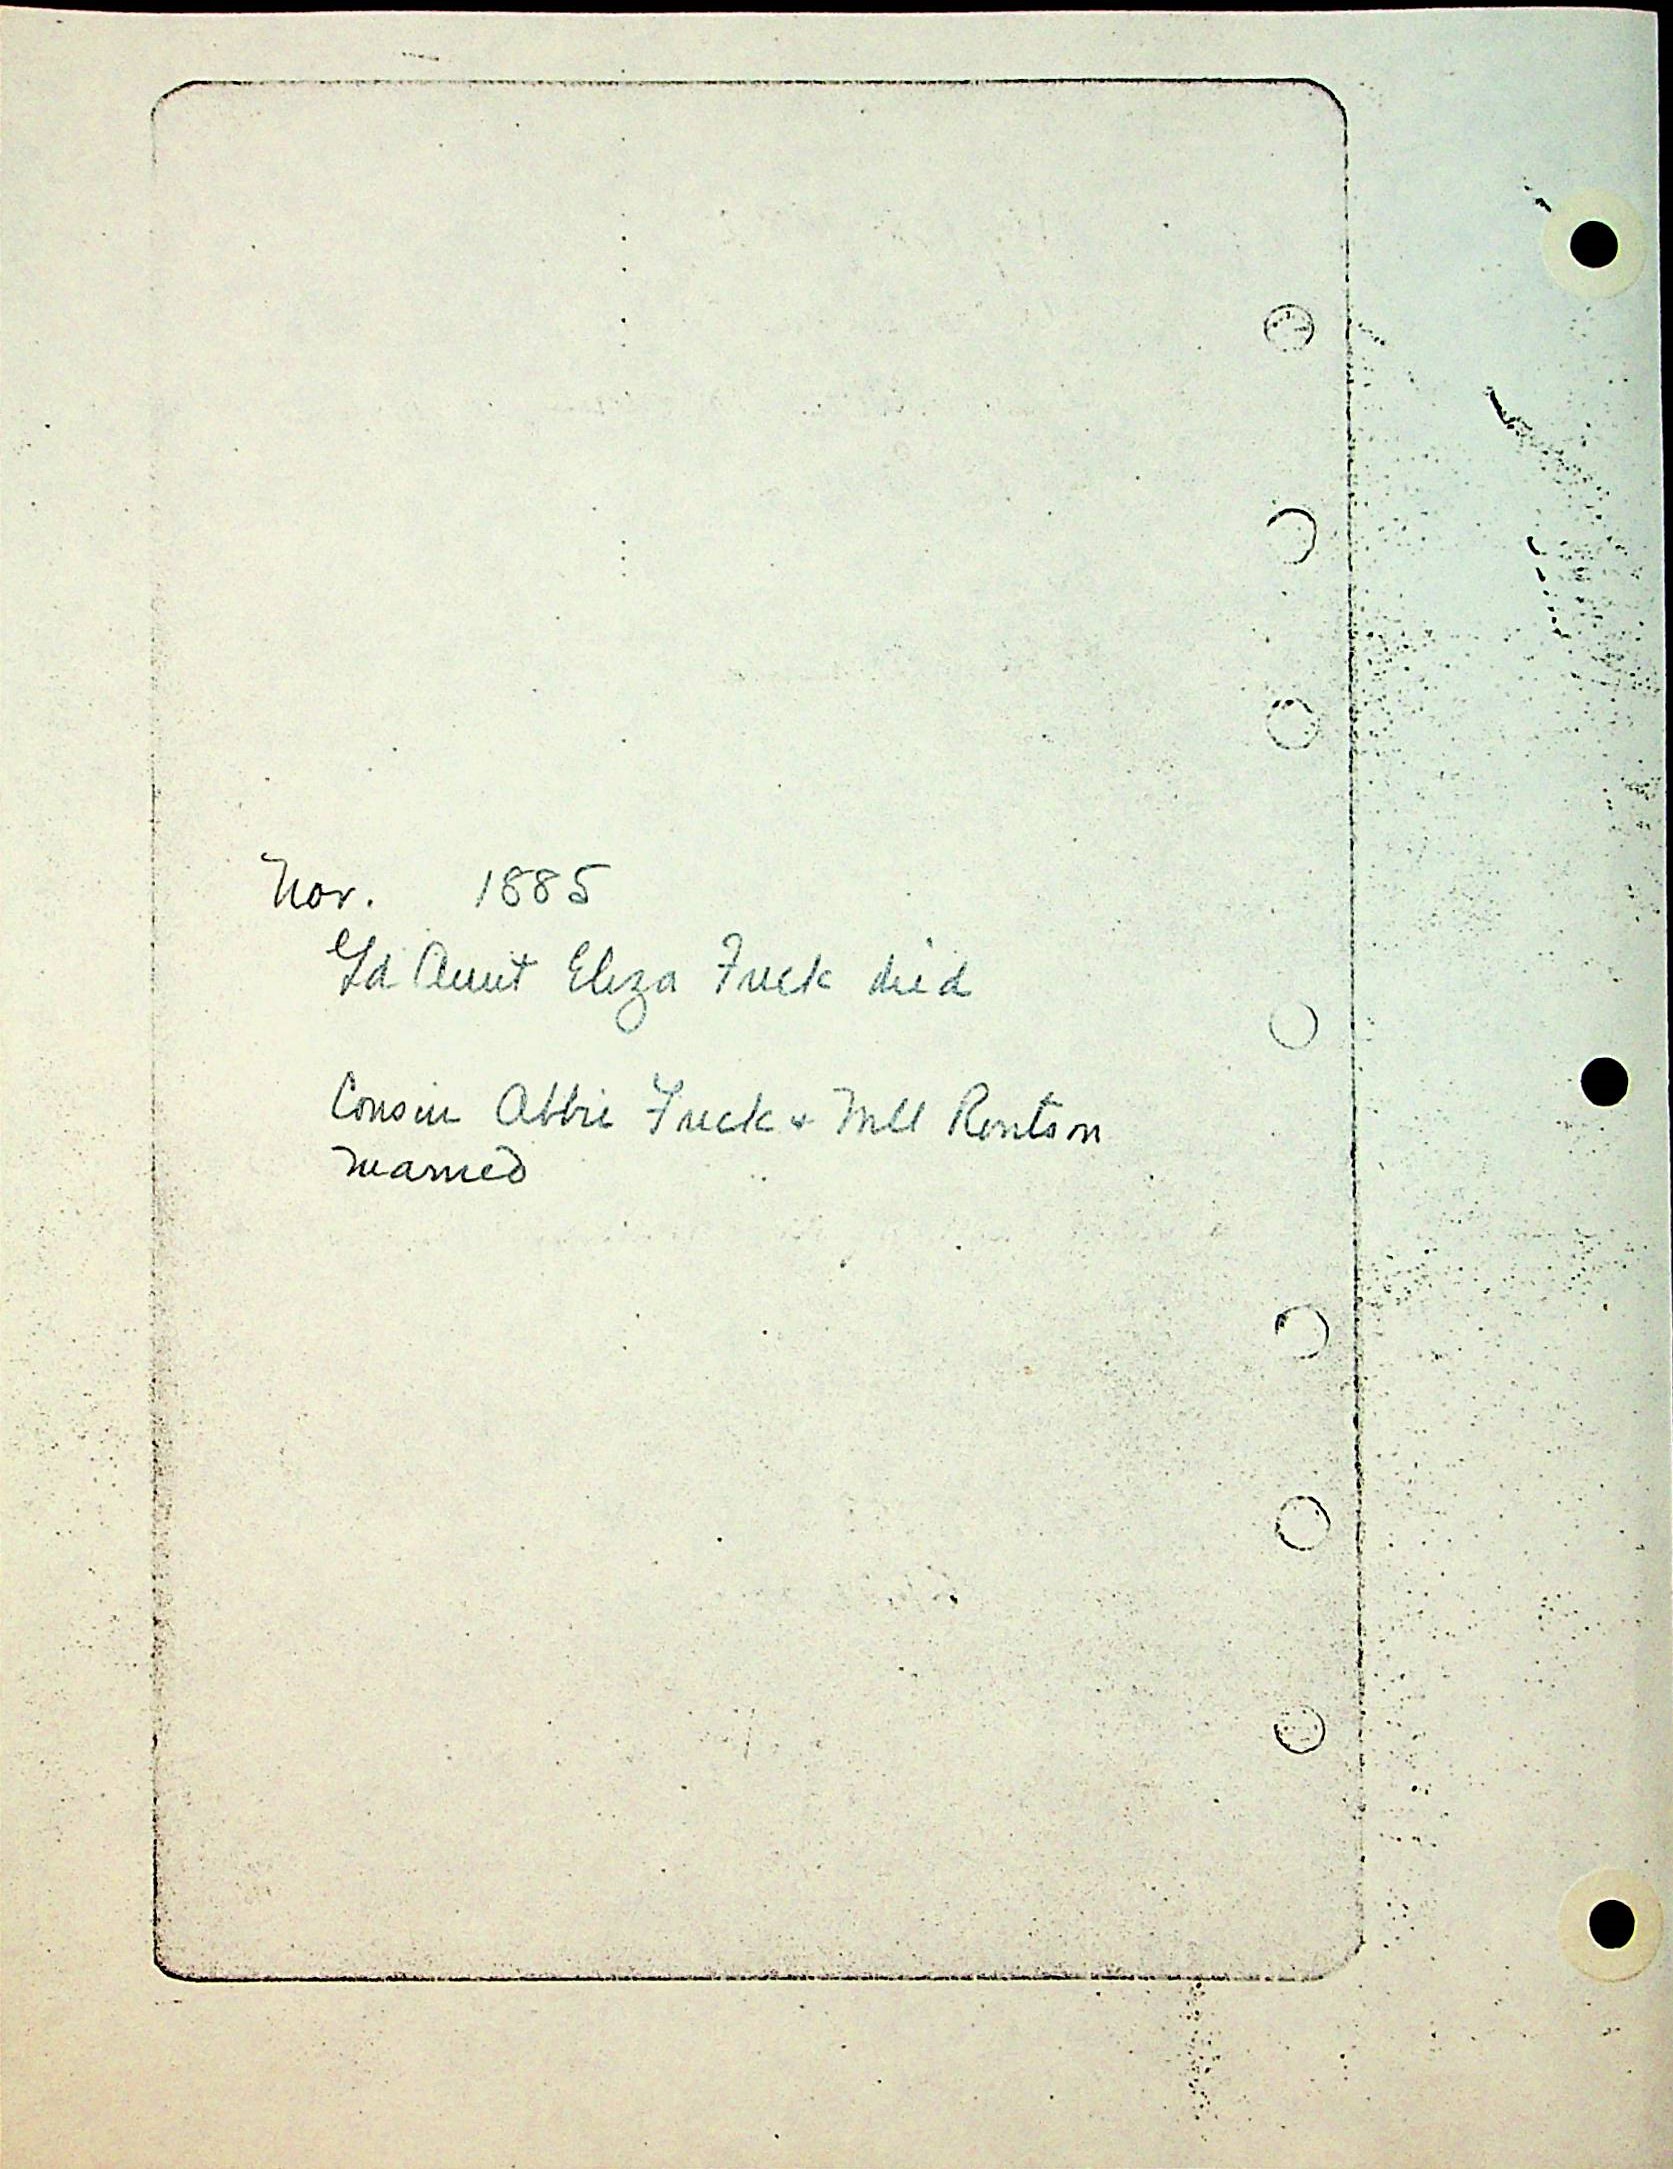 Nov. 1885
Gd Aunt Eliza Fuck died
Cousin Abbie Fuck & Will
married